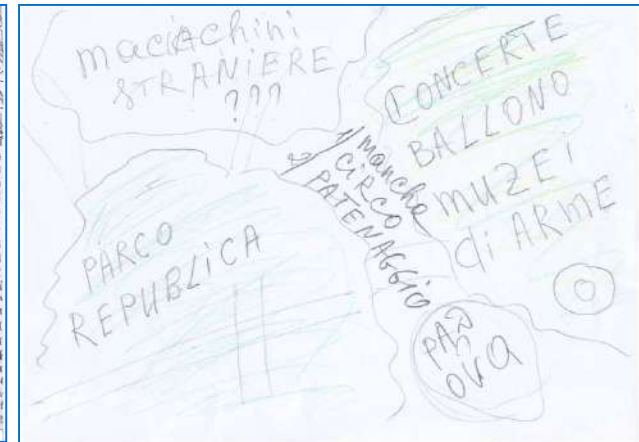 maciachini
STRANiERE
???
CONCERTE
BALLONO
MUZEi
di ARME
manche
CiRCO
PATENAGGiO
PARCO
REPUBLiCA
PAD
OVA